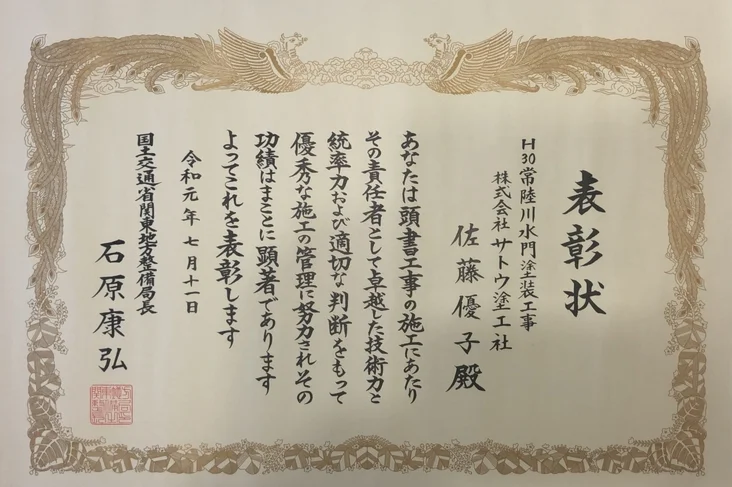 表彰状
H30常陸川水門塗装工事
株式会社 サトウ塗工社
佐藤優子殿
あなたは頭書工事の施工にあたり
その責任者として卓越した技術力と
統率力および適切な判断をもって
優秀な施工の管理に努力されその
功績はまことに顕著であります
よってこれを表彰します
令和元年七月十一日
国土交通省関東地方整備局長
石原康弘